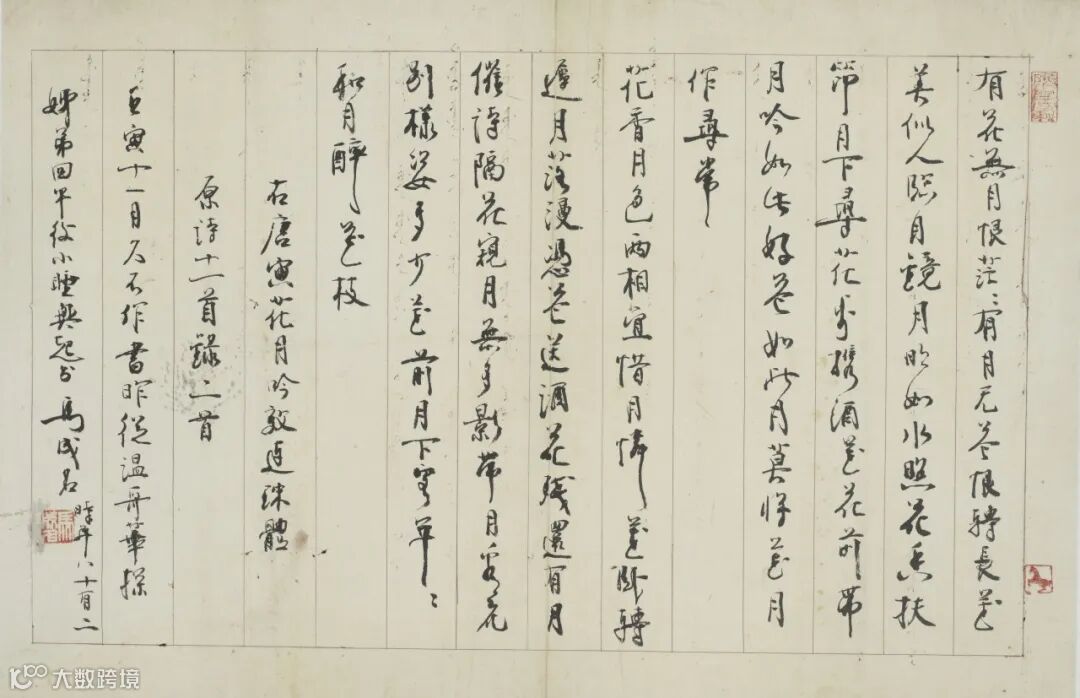 有花無月恨茫〻有月无花恨轉長花
美似人臨月鏡月明如水照花香扶
筇月下尋花步攜酒花花前帶
月吟如此好花如此月莫將花月
作尋常
花香月色兩相宜惜月憐花臥轉
遲月落漫憑花送酒花殘還有月
催詩隔花窺月無多影帶月看花
別樣姿多少花前月下客年〻
和月醉花枝
右唐寅花月吟效連珠體
原詩十一首錄二首
壬寅十一月久不作書昨從溫哥華探
姊弟回午後小睡興起書馬成名
時年八十有二
大数跨境